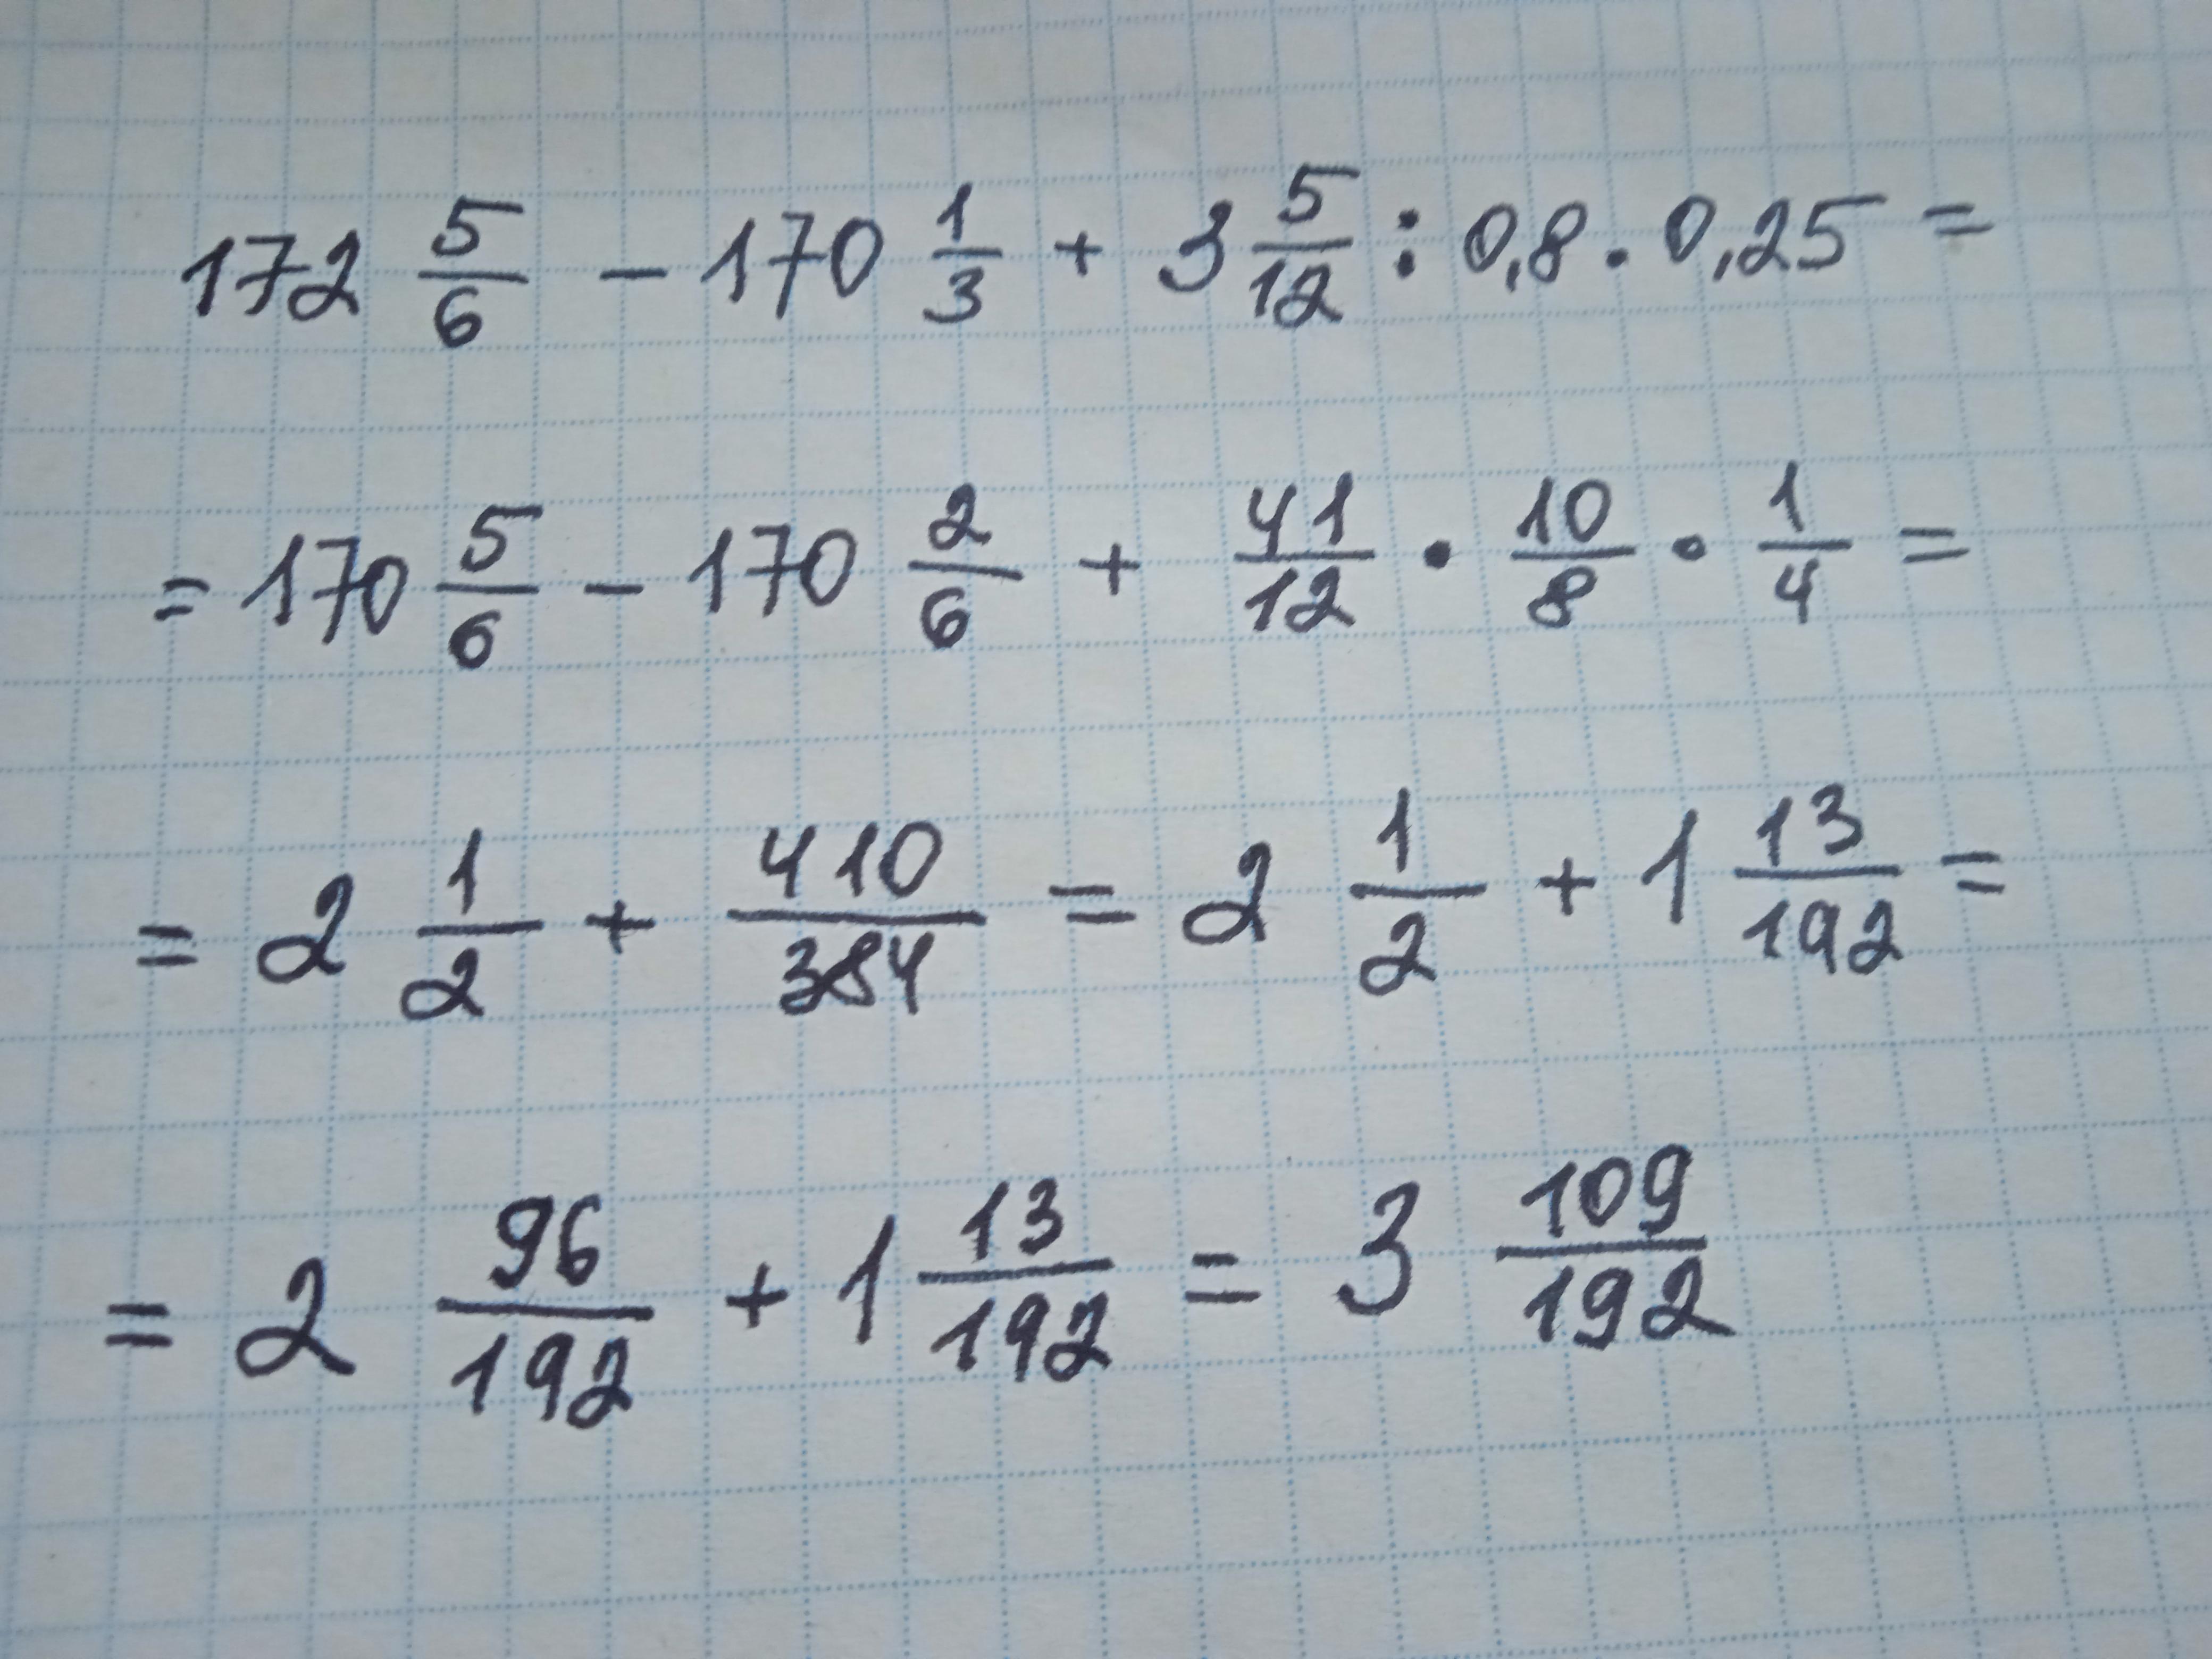 172 5/6 - 170 1/3 + 3 5/12 : 0,8 · 0,25 =
= 170 5/6 - 170 2/6 + 41/12 · 10/8 · 1/4 =
= 2 1/2 + 410/384 = 2 1/2 + 1 13/192 =
= 2 96/192 + 1 13/192 = 3 109/192